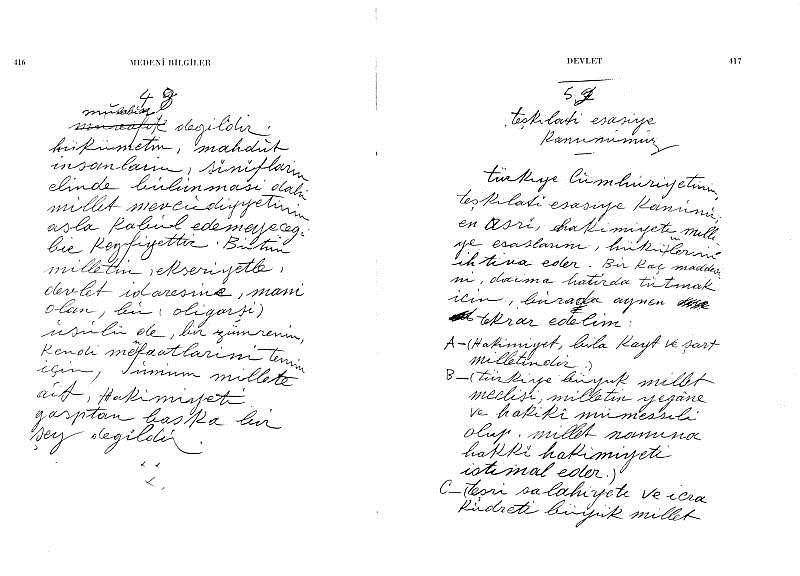 416
MEDENİ BİLGİLER
4
müsebbip
muvafık degildir.
hükümetin, mahdut
insanların, sınıfların
elinde bulunması dahi
millet mevcudiyyetinin
asla kabul edemeyeceği
bir keyfiyettir. Bütün
milletin, ekseriyetle,
devlet idaresine, mani
olan, bu (oligarşi)
usulü de, bir zümrenin,
kendi menfaatlarini temin
için, umum millete
ait, Hakimiyeti
gasptan başka bir
şey degildir.
DEVLET
417
5
teşkilati esasiye
kanunumuz
türkiye Cümhuriyetinin,
teşkilati esasiye kanunu,
en asri, hakimiyeti milli
ye esaslarını, hükümlerini
ihtiva eder. Bir kaç maddesi
ni, daima hatırda tutmak
için, burada aynen
tekrar edelim:
A-(Hakimiyet, bila kayt ve şart
milletindir.)
B-(türkiye büyük millet
meclisi, milletin yegâne
ve hakikî mümessili
olup, millet namına
hakkî hakimiyeti
istimal eder.)
C-(teşri salahiyeti ve icra
kudreti büyük millet